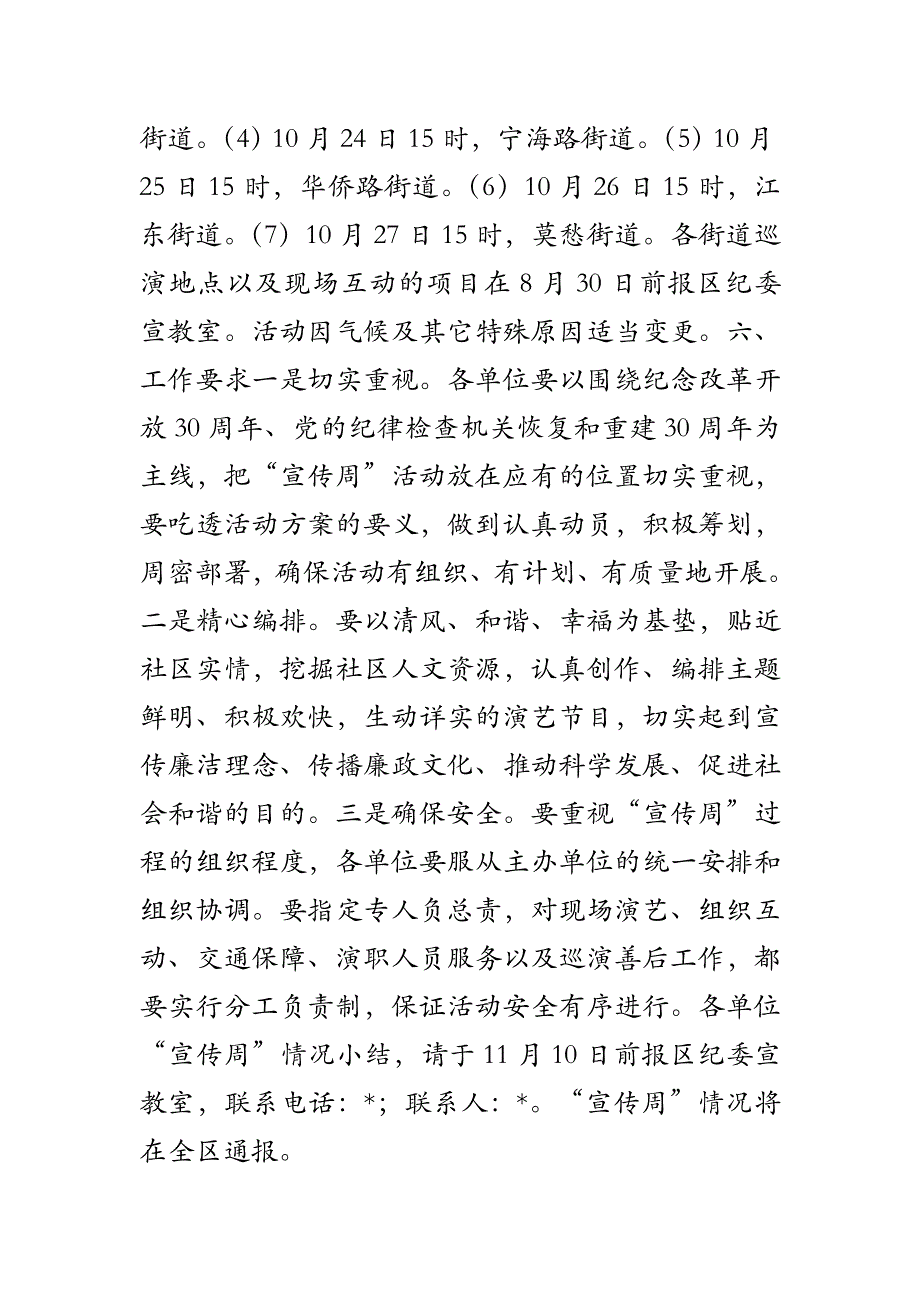 街道。（4）10 月 24 日 15 时，宁海路街道。（5）10 月
25 日 15 时，华侨路街道。（6）10 月 26 日 15 时，江
东街道。（7）10 月 27 日 15 时，莫愁街道。各街道巡
演地点以及现场互动的项目在 8 月 30 日前报区纪委
宣教室。活动因气候及其它特殊原因适当变更。六、
工作要求一是切实重视。各单位要以围绕纪念改革开
放 30 周年、党的纪律检查机关恢复和重建 30 周年为
主线，把“宣传周”活动放在应有的位置切实重视，
要吃透活动方案的要义，做到认真动员，积极筹划，
周密部署，确保活动有组织、有计划、有质量地开展。
二是精心编排。要以清风、和谐、幸福为基垫，贴近
社区实情，挖掘社区人文资源，认真创作、编排主题
鲜明、积极欢快，生动详实的演艺节目，切实起到宣
传廉洁理念、传播廉政文化、推动科学发展、促进社
会和谐的目的。三是确保安全。要重视“宣传周”过
程的组织程度，各单位要服从主办单位的统一安排和
组织协调。要指定专人负总责，对现场演艺、组织互
动、交通保障、演职人员服务以及巡演善后工作，都
要实行分工负责制，保证活动安全有序进行。各单位
“宣传周”情况小结，请于 11 月 10 日前报区纪委宣
教室，联系电话：*；联系人：*。“宣传周”情况将
在全区通报。